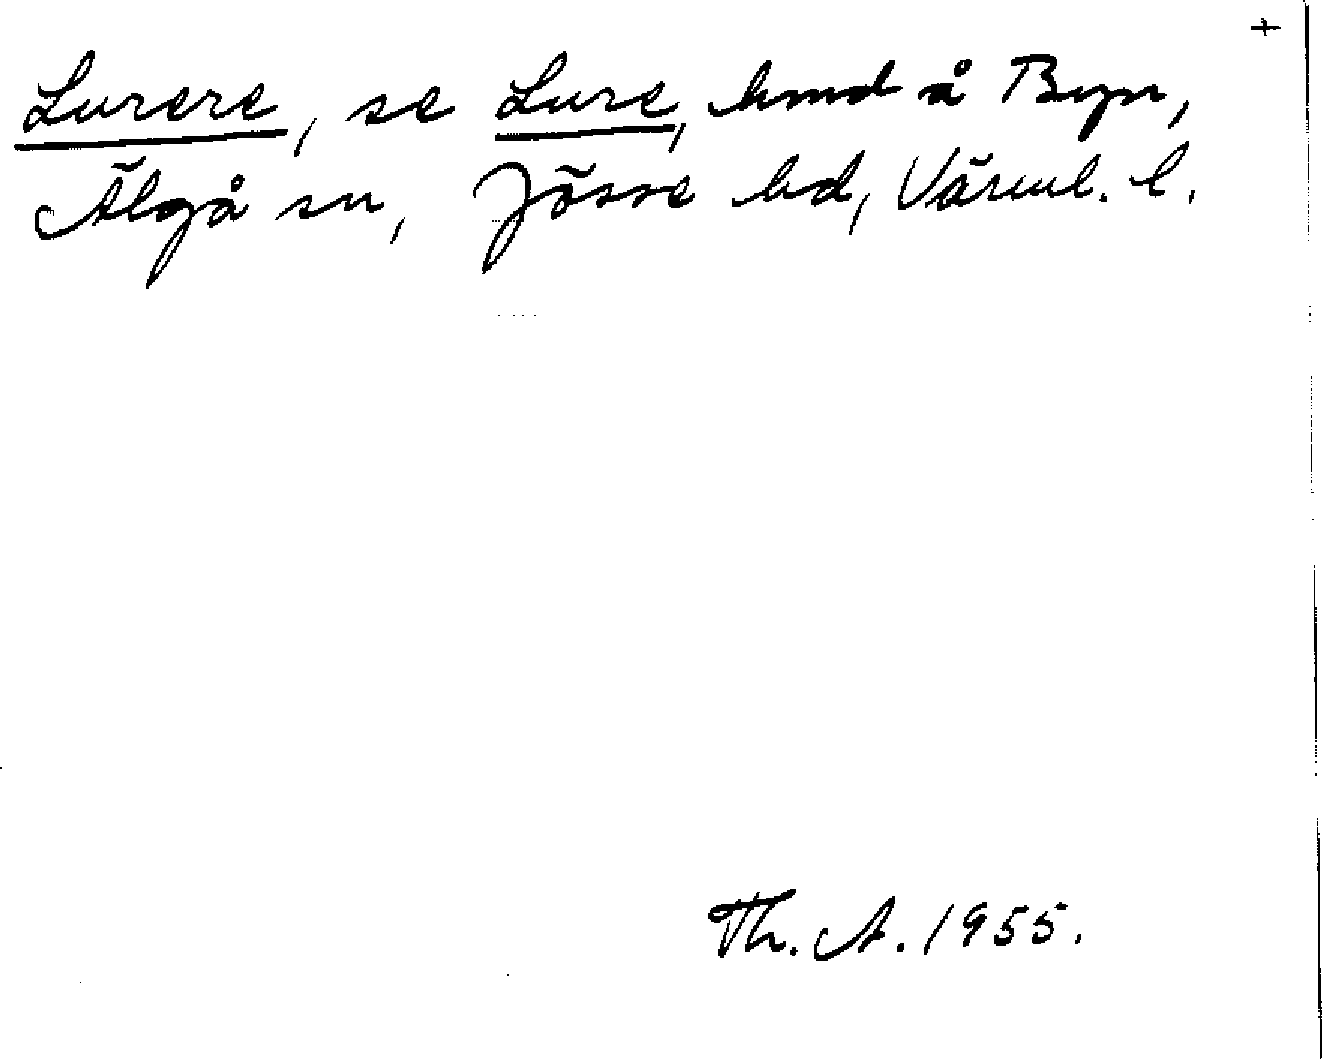 +
Lurere, se Lure, hmd å Byn,
Älgå sn, Jösse hd, Värml. l.
Th. A. 1955.